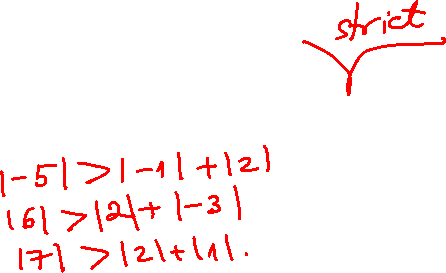 strict
|-5| > |-1| + |2|
|6| > |2| + |-3|
|7| > |2| + |1|.